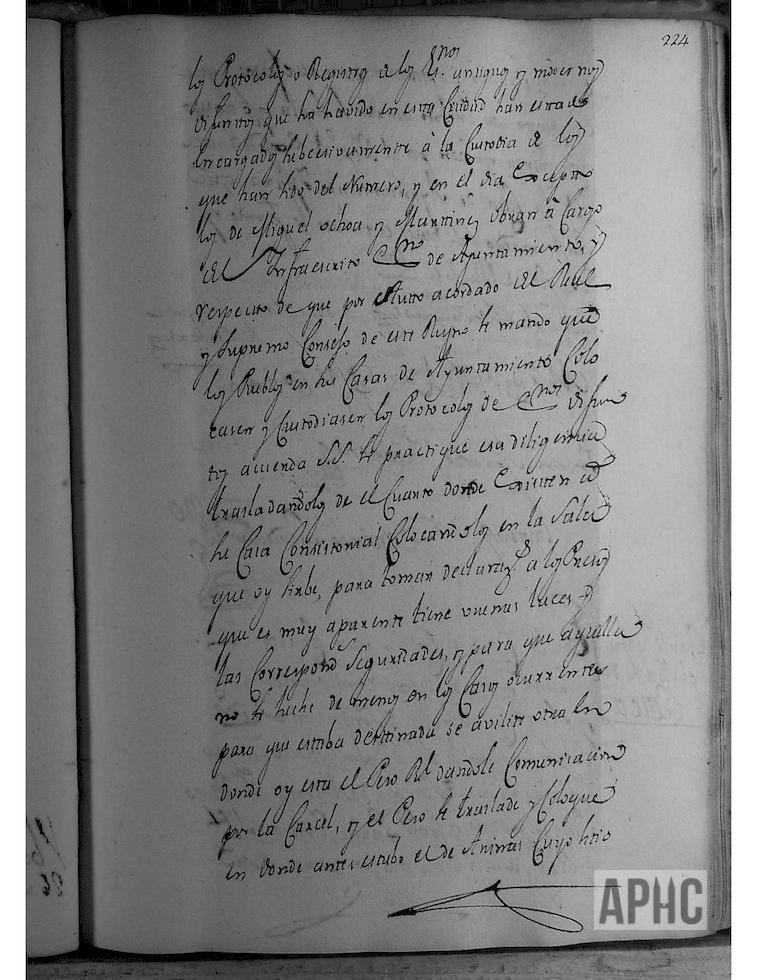 224
los Protocolos o Registros de los Esnos antiguos y modernos
difuntos que ha havido en esta Ciudad han estado
encargados subcesivamente à la Custodia de los
que han sido del Numero, y en el dia Excepto
los de Miguel ochoa y Martinez obran à Cargo
del Infraescrito Esno de Ayuntamiento, y
respecto de que por Autto acordado del Real
y Supremo Consejo de este Reyno se mando que
los Pueblos en sus Casas de Ayuntamiento Colo
casen y Custodiasen los Protocolos de Esnos difun
tos acuerda S.S. se practique esa diligencia
trasladandolos de el Cuarto donde Existen en
su Casa Consistorial Colocandolos en la Sala
que oy sirbe, para tomar declarazs a los Presos
que es muy aparente tiene vuenas luces y
las Correspond Seguridades, y para que aquella
no se heche de menos en los Casos ocurrentes
para que estaba destinada se avilite otra en
donde oy esta el Peso Rl dandole Comunicacion
por la Carcel, y el Peso se traslade y Coloque
en donde antes estubo el de Animas Cuyo sitio
APHC